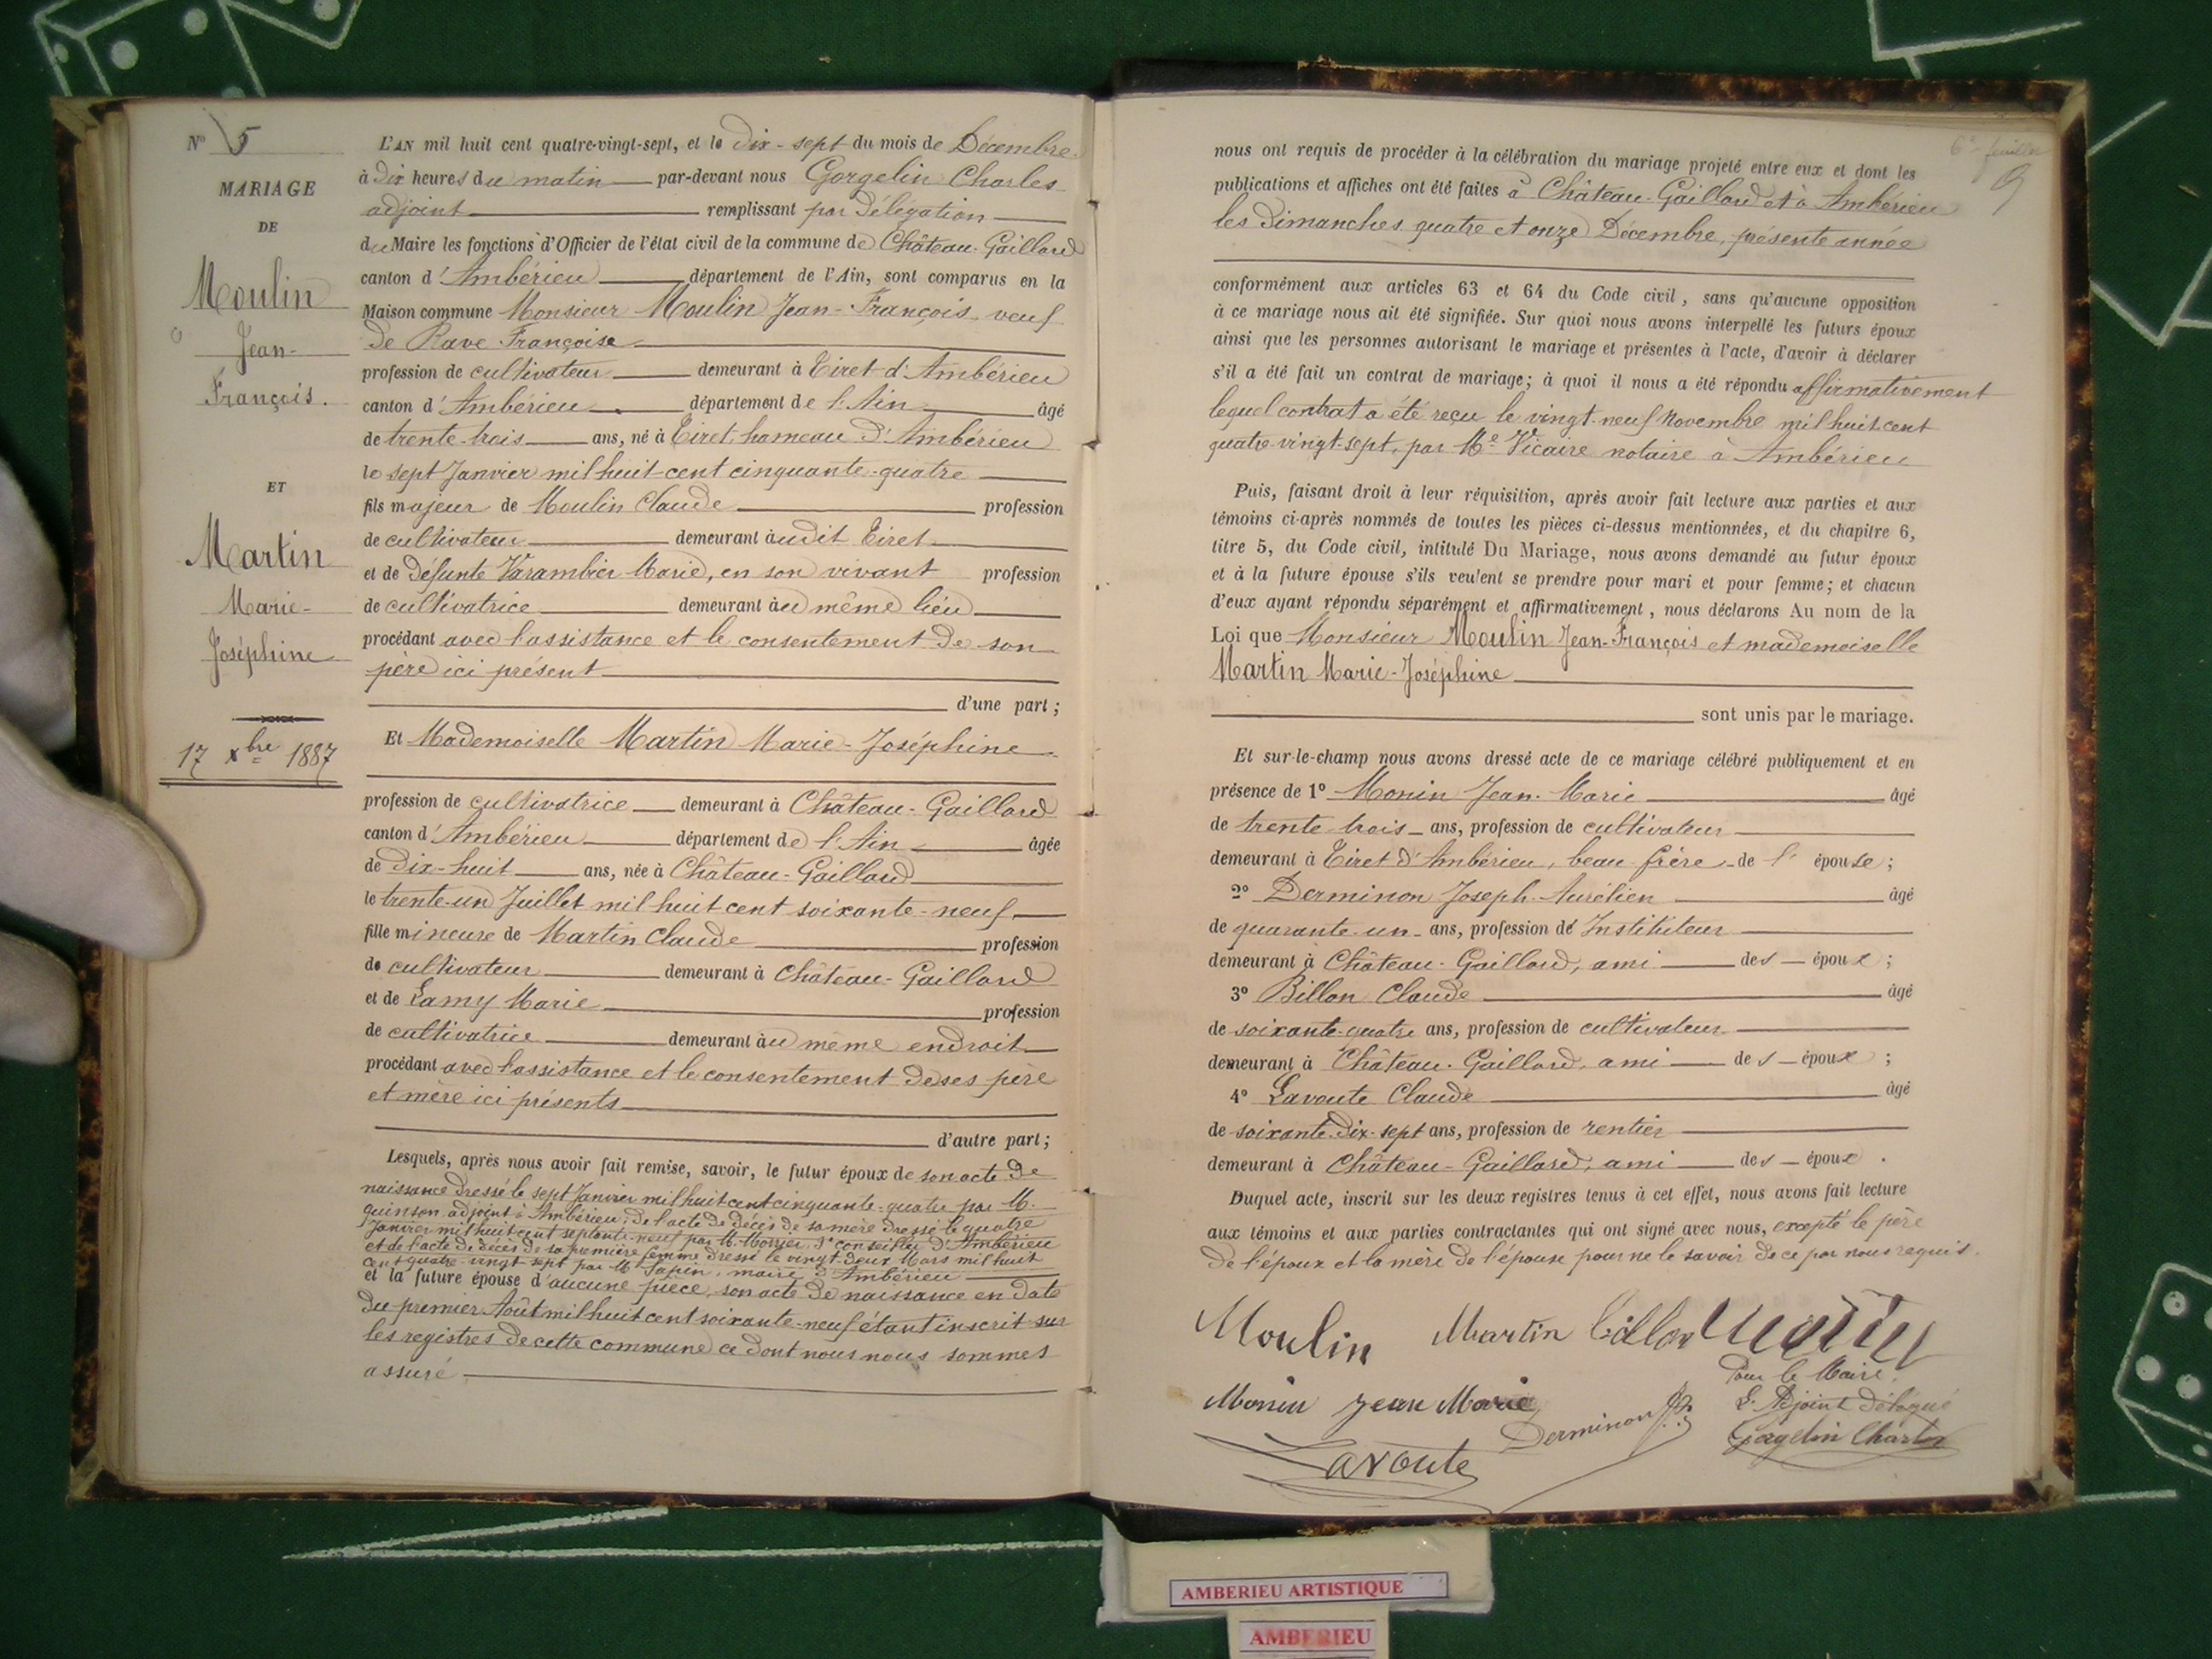 N° 5
MARIAGE
DE
Moulin
Jean-
François.
ET
Martin
Marie-
Joséphine
17 xbre 1887
L'AN mil huit cent quatre-vingt-sept, et le Dix-sept du mois de Décembre
à Dix heures du matin par-devant nous Gorgelin Charles
adjoint remplissant par Délégation
du Maire les fonctions d'Officier de l'état civil de la commune de Château-Gaillard
canton d'Ambérieu département de l'Ain, sont comparus en la
Maison commune Monsieur Moulin Jean-François, veuf
de Rave Françoise
profession de cultivateur demeurant à Tiret d'Ambérieu
canton d'Ambérieu département de l'Ain âgé
de trente-trois ans, né à Tiret, hameau d'Ambérieu
le sept Janvier mil huit cent cinquante-quatre
fils majeur de Moulin Claude profession
de cultivateur demeurant àudit Tiret
et de Défunte Varambier Marie, en son vivant profession
de cultivatrice demeurant àu même lieu
procédant avec l'assistance et le consentement de son
père ici présent
d'une part;
Et Mademoiselle Martin Marie-Joséphine
profession de cultivatrice demeurant à Château-Gaillard
canton d'Ambérieu département de l'Ain âgée
de Dix-huit ans, née à Château-Gaillard
le trente-un Juillet mil huit cent soixante-neuf
fille mineure de Martin Claude profession
de cultivateur demeurant à Château-Gaillard
et de Lamy Marie profession
de cultivatrice demeurant àu même endroit
procédant avec l'assistance et le consentement de ses père
et mère ici présents
d'autre part;
Lesquels, après nous avoir fait remise, savoir, le futur époux de son acte de
naissance dressé le sept Janvier mil huit cent cinquante-quatre par M.
quinson adjoint à Ambérieu; de l'acte de décès de sa mère dressé le quatre
Janvier mil huit cent septante-neuf par M. conseiller d'Ambérieu
et de l'acte de décès de sa première femme dressé le vingt-deux Mars mil huit
cent quatre-vingt-sept par M. Sapin, maire d'Ambérieu
et la future épouse d'aucune pièce, son acte de naissance en date
du premier Août mil huit cent soixante-neuf étant inscrit sur
les registres de cette commune ce dont nous nous sommes
assuré
6e feuillet
nous ont requis de procéder à la célébration du mariage projeté entre eux et dont les
publications et affiches ont été faites à Château-Gaillard et à Ambérieu
les Dimanches quatre et onze Décembre, présente année
conformément aux articles 63 et 64 du Code civil, sans qu'aucune opposition
à ce mariage nous ait été signifiée. Sur quoi nous avons interpellé les futurs époux
ainsi que les personnes autorisant le mariage et présentes à l'acte, d'avoir à déclarer
s'il a été fait un contrat de mariage; à quoi il nous a été répondu affirmativement
lequel contrat a été reçu le vingt-neuf Novembre mil huit cent
quatre-vingt-sept, par Me Vicaire notaire à Ambérieu
Puis, faisant droit à leur réquisition, après avoir fait lecture aux parties et aux
témoins ci-après nommés de toutes les pièces ci-dessus mentionnées, et du chapitre 6,
titre 5, du Code civil, intitulé Du Mariage, nous avons demandé au futur époux
et à la future épouse s'ils veulent se prendre pour mari et pour femme; et chacun
d'eux ayant répondu séparément et affirmativement, nous déclarons Au nom de la
Loi que Monsieur Moulin Jean-François et mademoiselle
Martin Marie-Joséphine
sont unis par le mariage.
Et sur-le-champ nous avons dressé acte de ce mariage célébré publiquement et en
présence de 1° Monin Jean-Marie âgé
de trente-trois ans, profession de cultivateur
demeurant à Tiret d'Ambérieu, beau-frère de l'épouse;
2° Derminon Joseph-Aurélien âgé
de quarante-un ans, profession de Instituteur
demeurant à Château-Gaillard, ami des époux;
3° Billon Claude âgé
de soixante-quatre ans, profession de cultivateur
demeurant à Château-Gaillard, ami des époux;
4° Lavoute Claude âgé
de soixante-Dix-sept ans, profession de rentier
demeurant à Château-Gaillard, ami des époux.
Duquel acte, inscrit sur les deux registres tenus à cet effet, nous avons fait lecture
aux témoins et aux parties contractantes qui ont signé avec nous, excepté le père
de l'époux et la mère de l'épouse pour ne le savoir de ce par nous requis.
Moulin Martin billon Martin
Pour le Maire,
Monin jean Marie L'Adjoint Délégué
Derminon Gorgelin Charles
Lavoute
AMBERIEU ARTISTIQUE
AMBERIEU